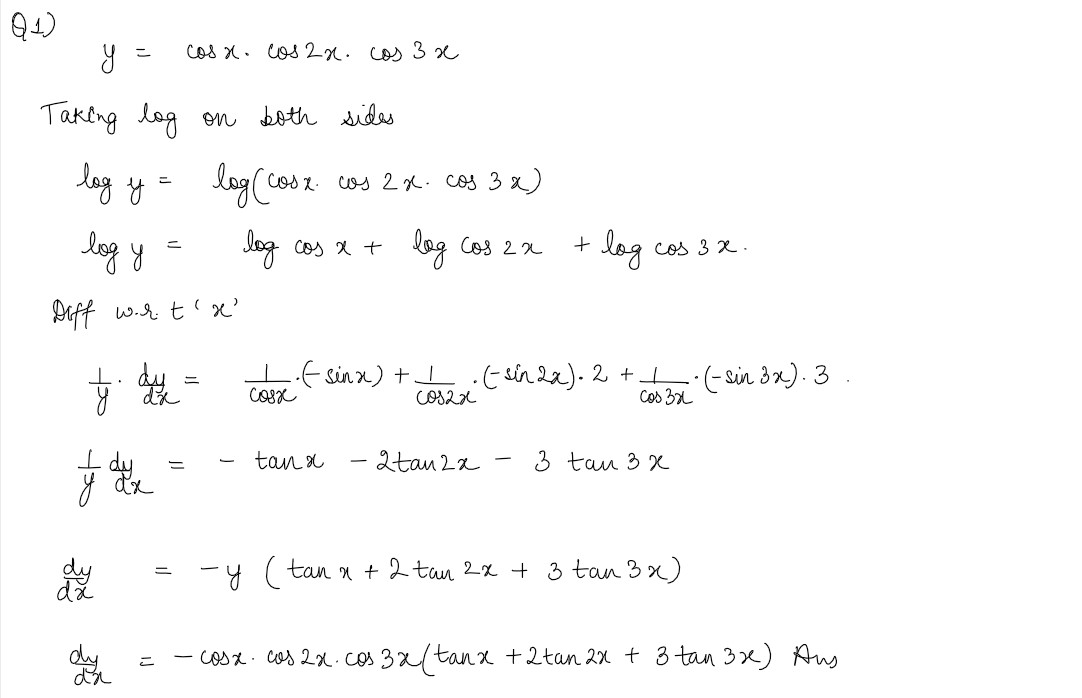 Q1)
y = cos x . cos 2x . cos 3x
Taking log on both sides
log y = log(cos x . cos 2x . cos 3x)
log y = log cos x + log cos 2x + log cos 3x .
Diff w.r.t 'x'
1/y . dy/dx = 1/cosx . (-sin x) + 1/cos2x . (-sin 2x) . 2 + 1/cos 3x . (-sin 3x) . 3 .
1/y dy/dx = - tan x - 2 tan 2x - 3 tan 3x
dy/dx = -y ( tan x + 2 tan 2x + 3 tan 3x )
dy/dx = - cos x . cos 2x . cos 3x ( tan x + 2 tan 2x + 3 tan 3x ) Ans